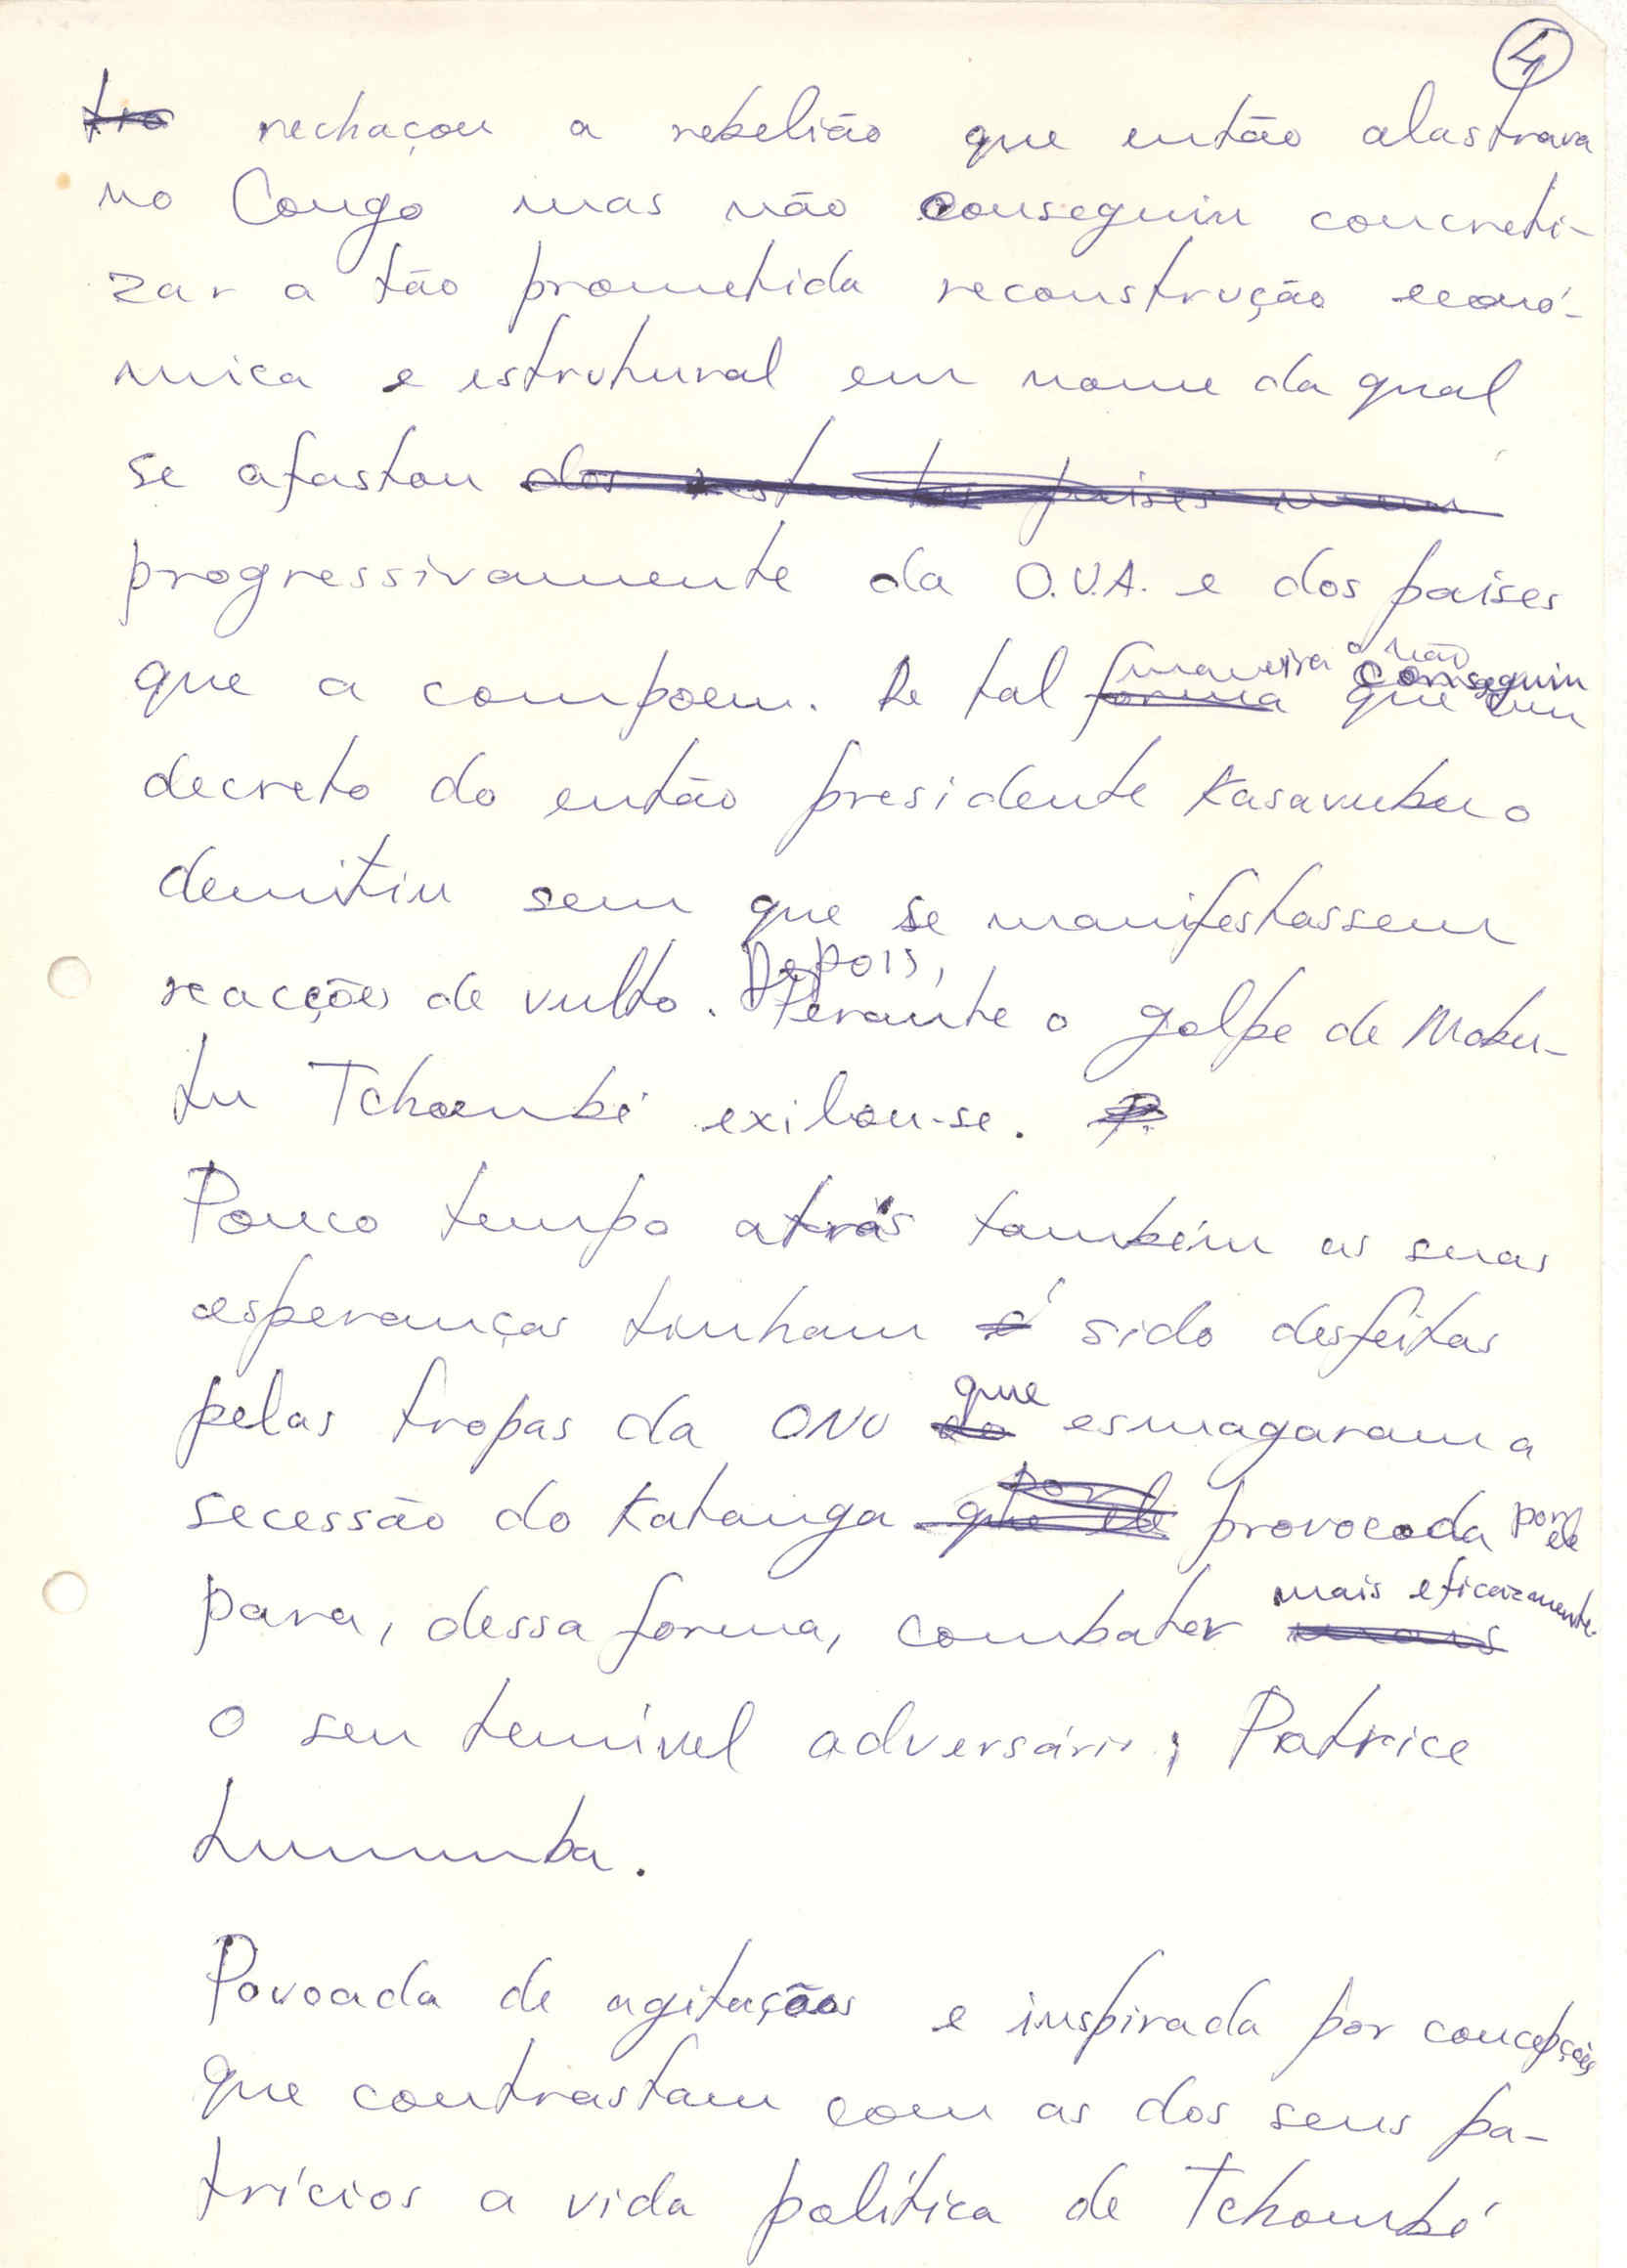 4
tro rechaçou a rebelião que então alastrava
no Congo mas não conseguiu concreti-
zar a tão prometida reconstrução econó-
mica e estrutural em nome da qual
se afastou dos restantes países
progressivamente da O.U.A. e dos países
que a compoem. De tal forma que um
maneira o não conseguiu
decreto do então presidente Kasavubu o
demitiu sem que se manifestassem
reacções de vulto. Depois, Perante o golpe de Mobu-
tu Tchombé exilou-se. P.
Pouco tempo atrás também as suas
esperanças tinham é sido desfeitas
que
pelas tropas da ONU do esmagaram a
por
secessão do Katanga que ele provocada por ele
mais eficazmente
para, dessa forma, combater mais
o seu temível adversário, Patrice
Lumumba.
Povoada de agitações e inspirada por concepções
que contrastam com as dos seus pa-
trícios a vida política de Tchombé